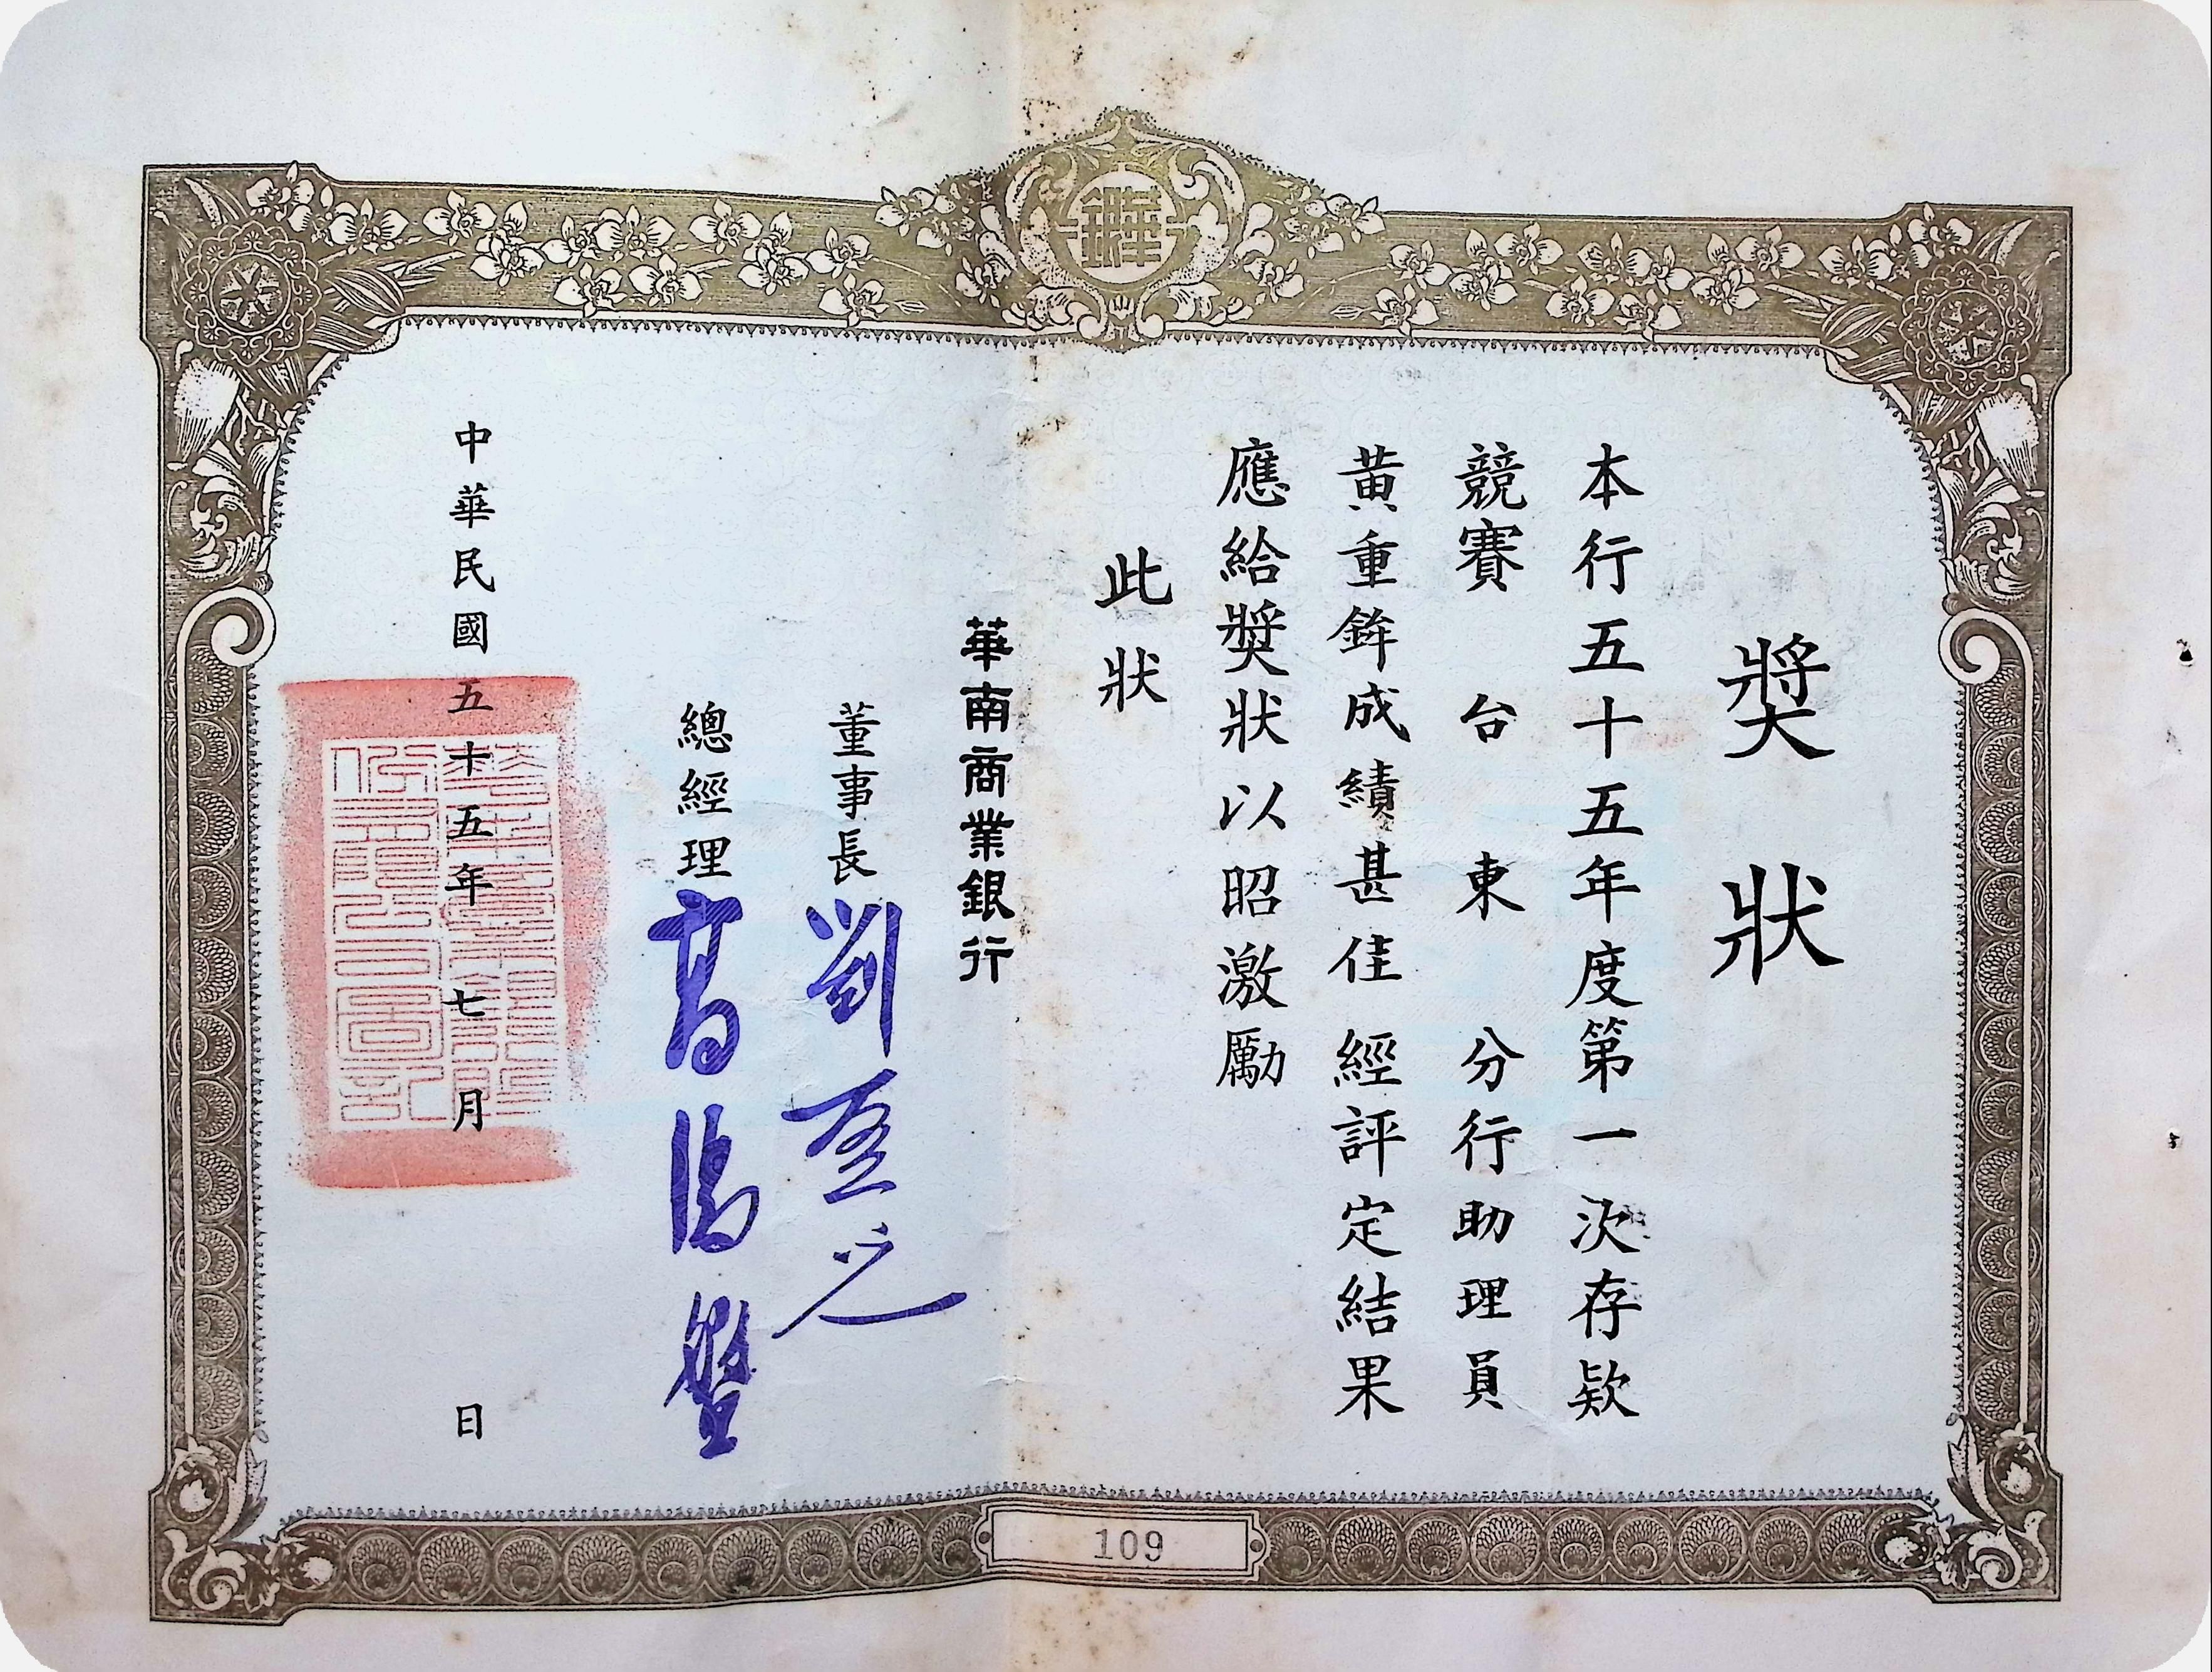 獎狀
本行五十五年度第一次存欵
競賽 台東 分行助理員
黃重鉾成績甚佳經評定結果
應給獎狀以昭激勵
此狀
華南商業銀行
董事長 劉啓光
總經理 高湯盤
中華民國五十五年七月 日
109